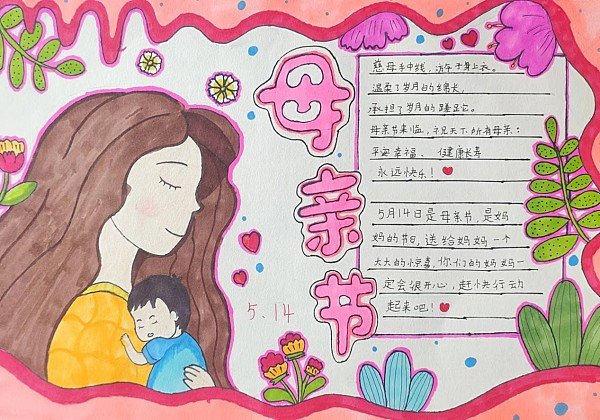 母
亲
节
5.14
慈母手中线，游子身上衣。
温柔了岁月的绵长，
承担了岁月的蹉跎。
母亲节来临，祝天下所有母亲：
平安幸福、健康长寿
永远快乐！
5月14日是母亲节，是妈
妈的节日，送给妈妈一个
大大的惊喜，你们的妈妈一
定会很开心，赶快行动
起来吧！